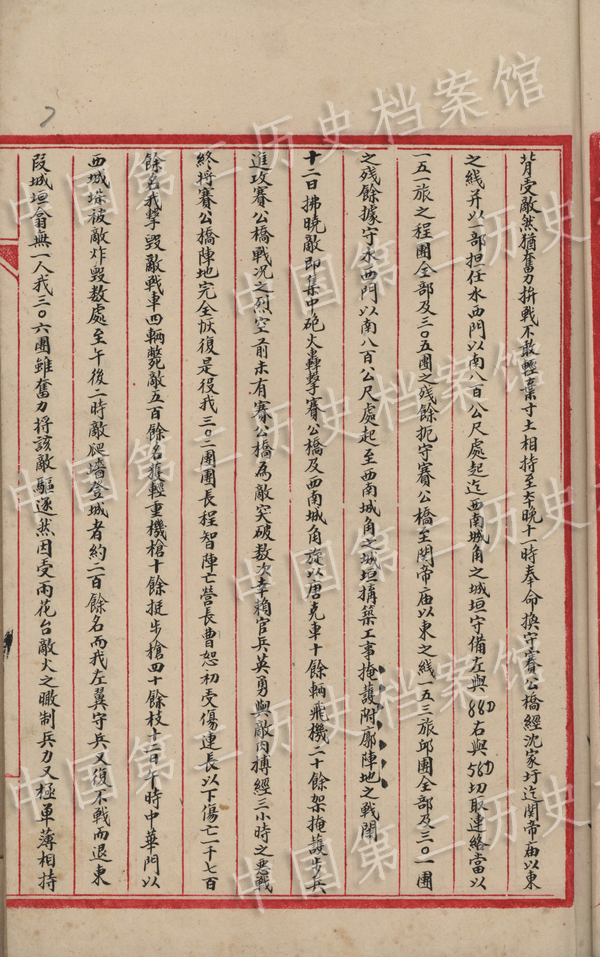 背受敵然猶奮力拚戰不敢輕棄寸土相持至本晚十一時奉命換守賽公橋經沈家圩迄関帝庙以東
之綫并以一部担任水西門以南八百公尺處起迄西南城角之城垣守備左與88D右與58D切取連絡當以
一五一旅之程團全部及三〇五團之残餘扼守賽公橋至関帝庙以東之綫一五三旅邱團全部及三〇一團
之残餘據守水西門以南八百公尺處起至西南城角之城垣搆築工事掩護附廓陣地之戰鬪
十二日拂曉敵即集中砲火轟擊賽公橋及西南城角旋以唐克車十餘輌飛機二十餘架掩護步兵
進攻賽公橋戰况之烈空前未有賽公橋為敵突破数次幸賴官兵英勇與敵肉搏經三小時之惡戰
終將賽公橋陣地完全恢復是役我三〇二團團長程智陣亡營長曹恕初受傷連長以下傷亡一千七百
餘名我擊毀敵戰車四輌斃敵五百餘名獲輕重機槍十餘挺步槍四十餘枝十二日午時中華門以
西城垛被敵炸毀数處至午後二時敵爬墻登城者約二百餘名而我左翼守兵又復不戰而退東
段城垣翕無一人我三〇六團雖奮力將該敵驅逐然因受雨花台敵火之瞰制兵力又極单薄相持
7
中国第二历史档案馆
中国第二历史档案馆
中国第二历史档案馆
中国第二历史档案馆